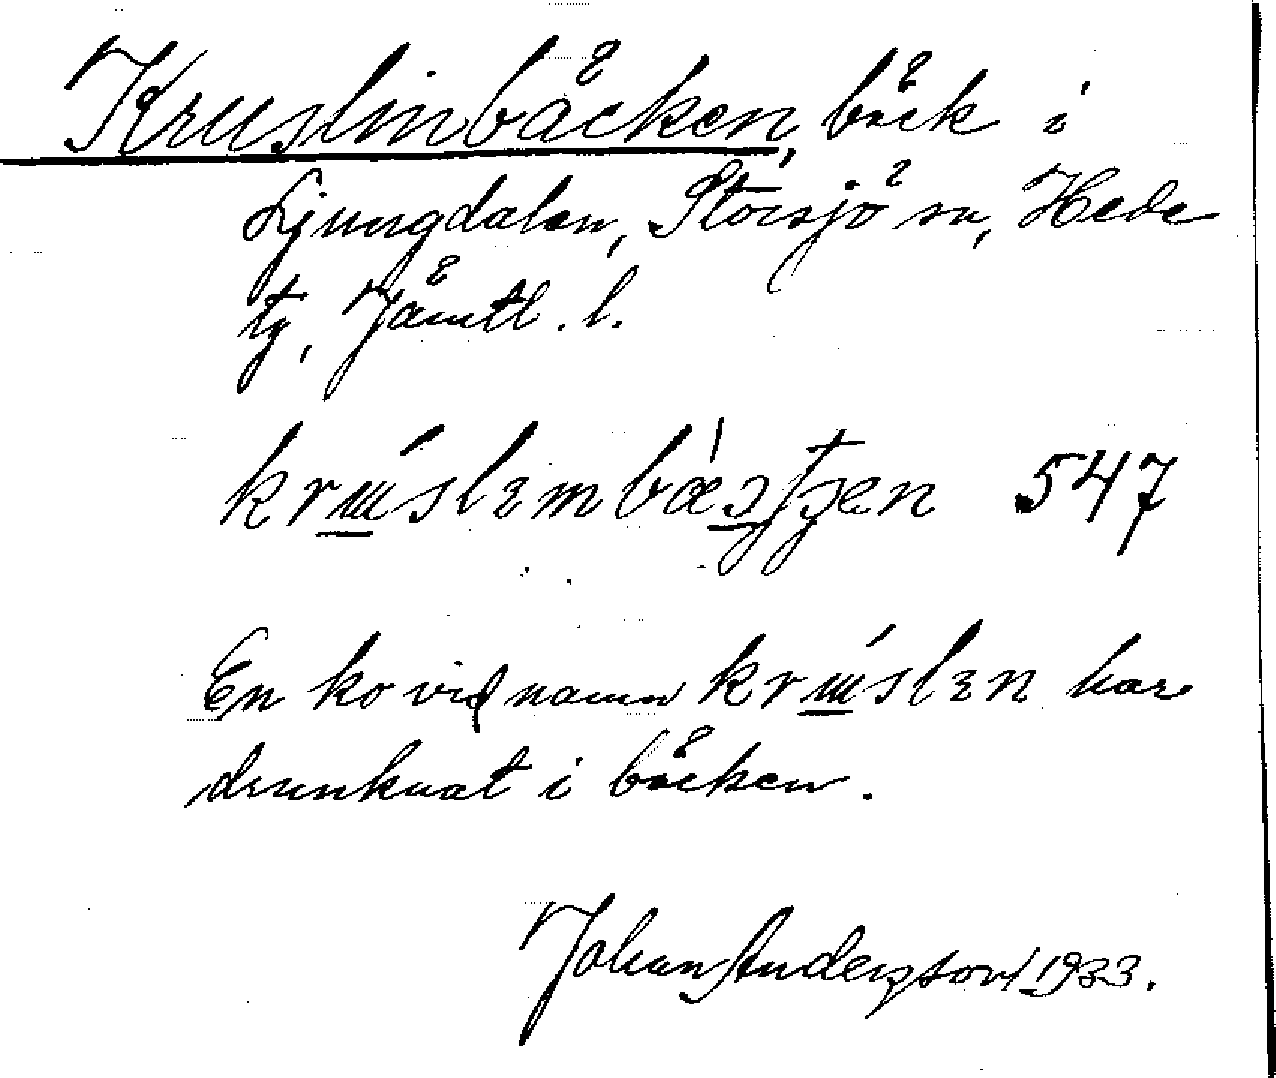 Kruslinbäcken, bäck i
Ljungdalen, Storsjö sn, Hede
tg, Jämtl. l.
547
En ko vid namn krɯ́slɛn har
drunknat i bäcken.
Johan Anderzson 1933.